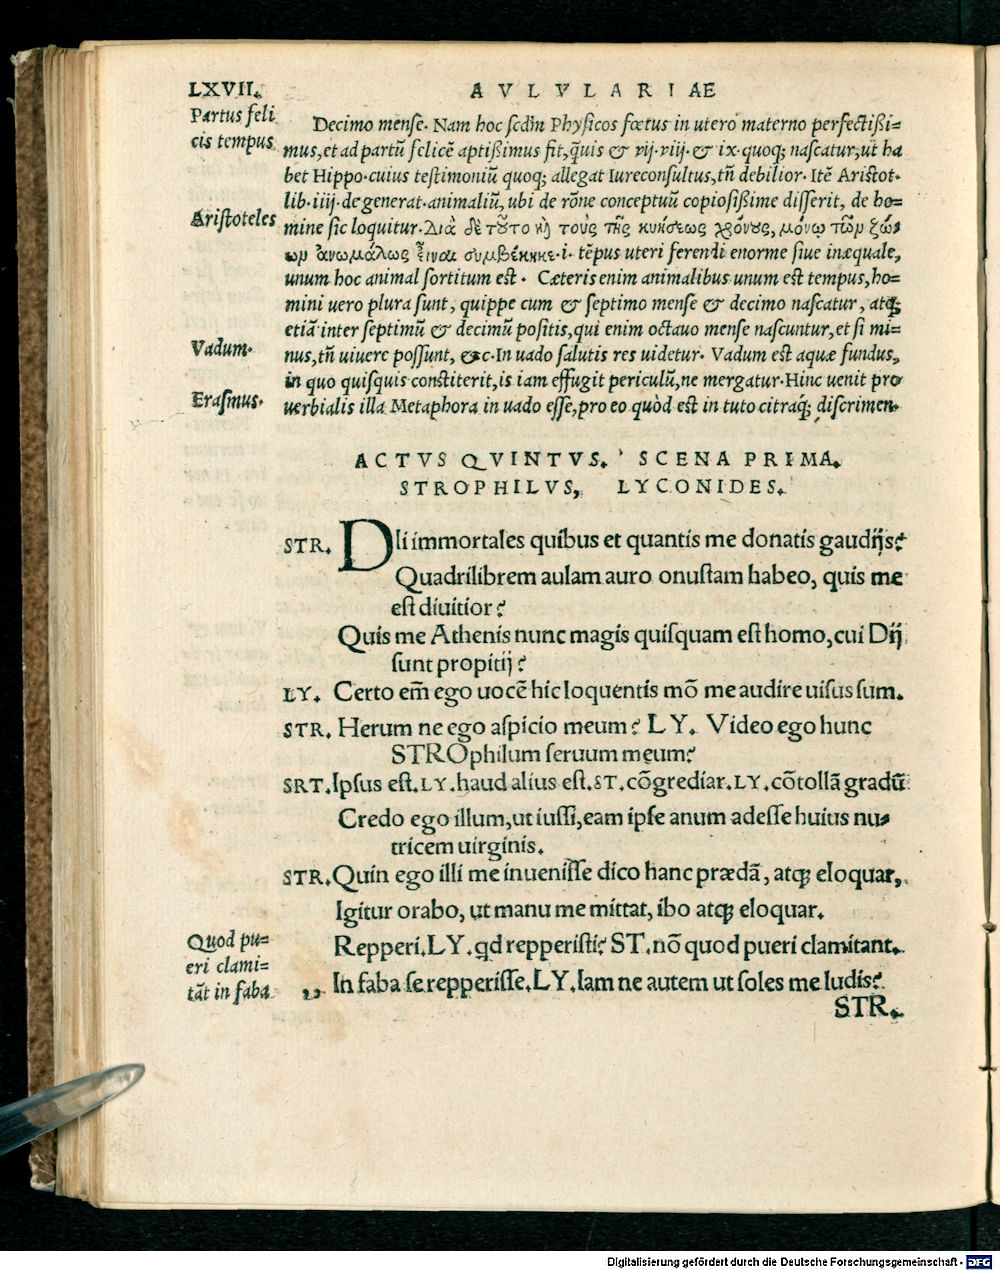 LXVII.
AVLVLARIAE
Partus feli
cis tempus
Decimo mense. Nam hoc scdm̃ Physicos fœtus in utero materno perfectißi=
mus, et ad partũ felicẽ aptißimus fit, q̃uis & vij. viij. & ix. quoq; nascatur, ut ha
bet Hippo. cuius testimoniũ quoq; allegat Iureconsultus, tñ debilior. Itẽ Aristot.
lib. iiij. de generat. animaliũ, ubi de rõne conceptuũ copiosißime disserit, de ho=
Aristoteles
mine sic loquitur. Διὰ δὲ τοῦτο καὶ τοὺς τῆς κυήσεως χρόνους, μόνῳ τῶν ζώ=
ων ἀνωμάλος εἶναι συμβέκηκε. i. tẽpus uteri ferendi enorme siue inæquale,
unum hoc animal sortitum est. Cæteris enim animalibus unum est tempus, ho=
mini uero plura sunt, quippe cum & septimo mense & decimo nascatur, atq;
etiã inter septimũ & decimũ positis, qui enim octauo mense nascuntur, et si mi=
Vadum.
nus, tñ uiuere possunt, &c. In uado salutis res uidetur. Vadum est aquæ fundus,
in quo quisquis constiterit, is iam effugit periculũ, ne mergatur. Hinc uenit pro
Erasmus.
uerbialis illa Metaphora in uado esse, pro eo quòd est in tuto citraq́; discrimen.
ACTVS QVINTVS. SCENA PRIMA.
STROPHILVS, LYCONIDES.
STR. DIi immortales quibus et quantis me donatis gaudijs?
Quadrilibrem aulam auro onustam habeo, quis me
est diuitior?
Quis me Athenis nunc magis quisquam est homo, cui Dij
sunt propitij?
LY. Certo em̃ ego uocẽ hic loquentis mõ me audire uisus sum.
STR. Herum ne ego aspicio meum? LY. Video ego hunc
STROphilum seruum meum?
SRT. Ipsus est. LY. haud alius est. ST. cõgrediar. LY. cõtollã gradũ
Credo ego illum, ut iussi, eam ipse anum adesse huius nu=
tricem uirginis.
STR. Quin ego illi me inuenisse dico hanc prædã, atq; eloquar,
Igitur orabo, ut manu me mittat, ibo atq; eloquar.
Quod pu=
eri clami=
tãt in faba
Repperi. LY. qd repperisti? ST. nõ quod pueri clamitant.
,, In faba se repperisse. LY. Iam ne autem ut soles me ludis?
STR.
Digitalisierung gefördert durch die Deutsche Forschungsgemeinschaft - DFG